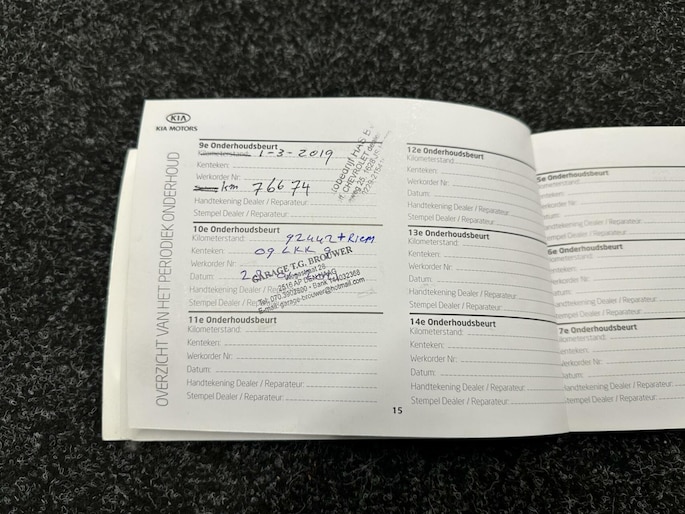 KIA
KIA MOTORS
OVERZICHT VAN HET PERIODIEK ONDERHOUD
9e Onderhoudsbeurt
Kilometerstand: 1-3-2019
Kenteken:
Werkorder Nr:
km 76674
Handtekening Dealer / Reparateur:
Stempel Dealer / Reparateur:
CHEVROLET
10e Onderhoudsbeurt
Kilometerstand: 92442 + RIEM
Kenteken: 09
Werkorder Nr:
Datum:
Handtekening Dealer /
Stempel Dealer /
GARAGE T.G. BROUWER
2516 AP DEN HAAG
Tel. 070.3902890 • Bank 144032368
E-mail: garage-brouwer@hotmail.com
11e Onderhoudsbeurt
Kilometerstand:
Kenteken:
Werkorder Nr:
Datum:
Handtekening Dealer / Reparateur:
Stempel Dealer / Reparateur:
15
12e Onderhoudsbeurt
Kilometerstand:
Kenteken:
Werkorder Nr:
Datum:
Handtekening Dealer / Reparateur:
Stempel Dealer / Reparateur:
13e Onderhoudsbeurt
Kilometerstand:
Kenteken:
Werkorder Nr:
Datum:
Handtekening Dealer / Reparateur:
Stempel Dealer / Reparateur:
14e Onderhoudsbeurt
Kilometerstand:
Kenteken:
Werkorder Nr:
Datum:
Handtekening Dealer / Reparateur:
Stempel Dealer / Reparateur:
5e Onderhoudsbeurt
Kilometerstand:
Kenteken:
Werkorder Nr:
Datum:
Handtekening Dealer / Reparateur:
Stempel Dealer / Reparateur:
6e Onderhoudsbeurt
Kilometerstand:
Kenteken:
Werkorder Nr:
Datum:
Handtekening Dealer / Reparateur:
Stempel Dealer / Reparateur:
7e Onderhoudsbeurt
Kilometerstand:
Kenteken:
Werkorder Nr:
Datum:
Handtekening Dealer / Reparateur:
Stempel Dealer / Reparateur: